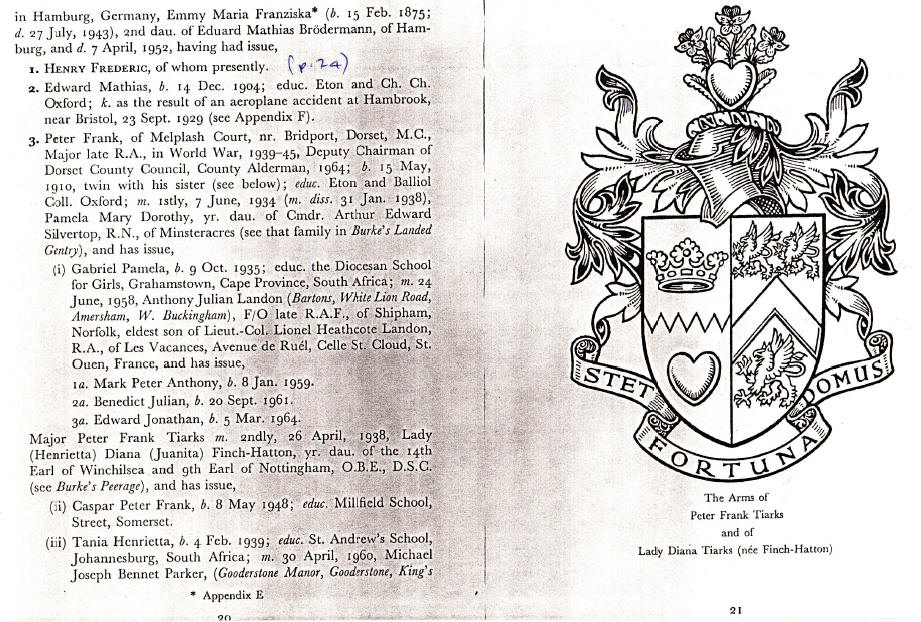 in Hamburg, Germany, Emmy Maria Franziska* (b. 15 Feb. 1875;
d. 27 July, 1943), 2nd dau. of Eduard Mathias Brödermann, of Ham-
burg, and d. 7 April, 1952, having had issue,
1. HENRY FREDERIC, of whom presently. (p. 24)
2. Edward Mathias, b. 14 Dec. 1904; educ. Eton and Ch. Ch.
Oxford; k. as the result of an aeroplane accident at Hambrook,
near Bristol, 23 Sept. 1929 (see Appendix F).
3. Peter Frank, of Melplash Court, nr. Bridport, Dorset, M.C.,
Major late R.A., in World War, 1939–45, Deputy Chairman of
Dorset County Council, County Alderman, 1964; b. 15 May,
1910, twin with his sister (see below); educ. Eton and Balliol
Coll. Oxford; m. 1stly, 7 June, 1934 (m. diss. 31 Jan. 1938),
Pamela Mary Dorothy, yr. dau. of Cmdr. Arthur Edward
Silvertop, R.N., of Minsteracres (see that family in Burke's Landed
Gentry), and has issue,
(i) Gabriel Pamela, b. 9 Oct. 1935; educ. the Diocesan School
for Girls, Grahamstown, Cape Province, South Africa; m. 24
June, 1958, Anthony Julian Landon (Bartons, White Lion Road,
Amersham, W. Buckingham), F/O late R.A.F., of Shipham,
Norfolk, eldest son of Lieut.-Col. Lionel Heathcote Landon,
R.A., of Les Vacances, Avenue de Ruél, Celle St. Cloud, St.
Ouen, France, and has issue,
1a. Mark Peter Anthony, b. 8 Jan. 1959.
2a. Benedict Julian, b. 20 Sept. 1961.
3a. Edward Jonathan, b. 5 Mar. 1964.
Major Peter Frank Tiarks m. 2ndly, 26 April, 1938, Lady
(Henrietta) Diana (Juanita) Finch-Hatton, yr. dau. of the 14th
Earl of Winchilsea and 9th Earl of Nottingham, O.B.E., D.S.C.
(see Burke's Peerage), and has issue,
(ii) Caspar Peter Frank, b. 8 May 1948; educ. Millfield School,
Street, Somerset.
(iii) Tania Henrietta, b. 4 Feb. 1939; educ. St. Andrew's School,
Johannesburg, South Africa; m. 30 April, 1960, Michael
Joseph Bennet Parker, (Gooderstone Manor, Gooderstone, King's
* Appendix E
20
STET FORTUNA DOMUS
The Arms of
Peter Frank Tiarks
and of
Lady Diana Tiarks (née Finch-Hatton)
21